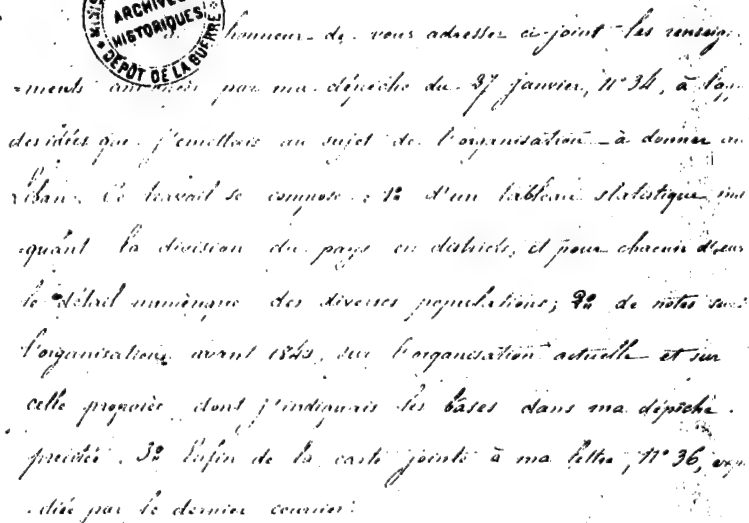 ARCHIVES
HISTORIQUES
DÉPÔT DE LA GUERRE
honneur de vous adresser ci-joint les renseig-
=ments par ma dépêche du 27 janvier, N° 34, à
des idées que j'émettais au sujet de l'organisation à donner au
Liban. Ce travail se compose : 1° d'un tableau statistique indi
=quant la division du pays en districts, et pour chacun d'eux
le détail numérique des diverses populations; 2° de notes sur
l'organisation avant 1842, sur l'organisation actuelle et sur
celle proposée dont j'indiquais les bases dans ma dépêche
précitée. 3° Enfin de la carte jointe à ma lettre, N° 36, expé
-diée par le dernier courrier.